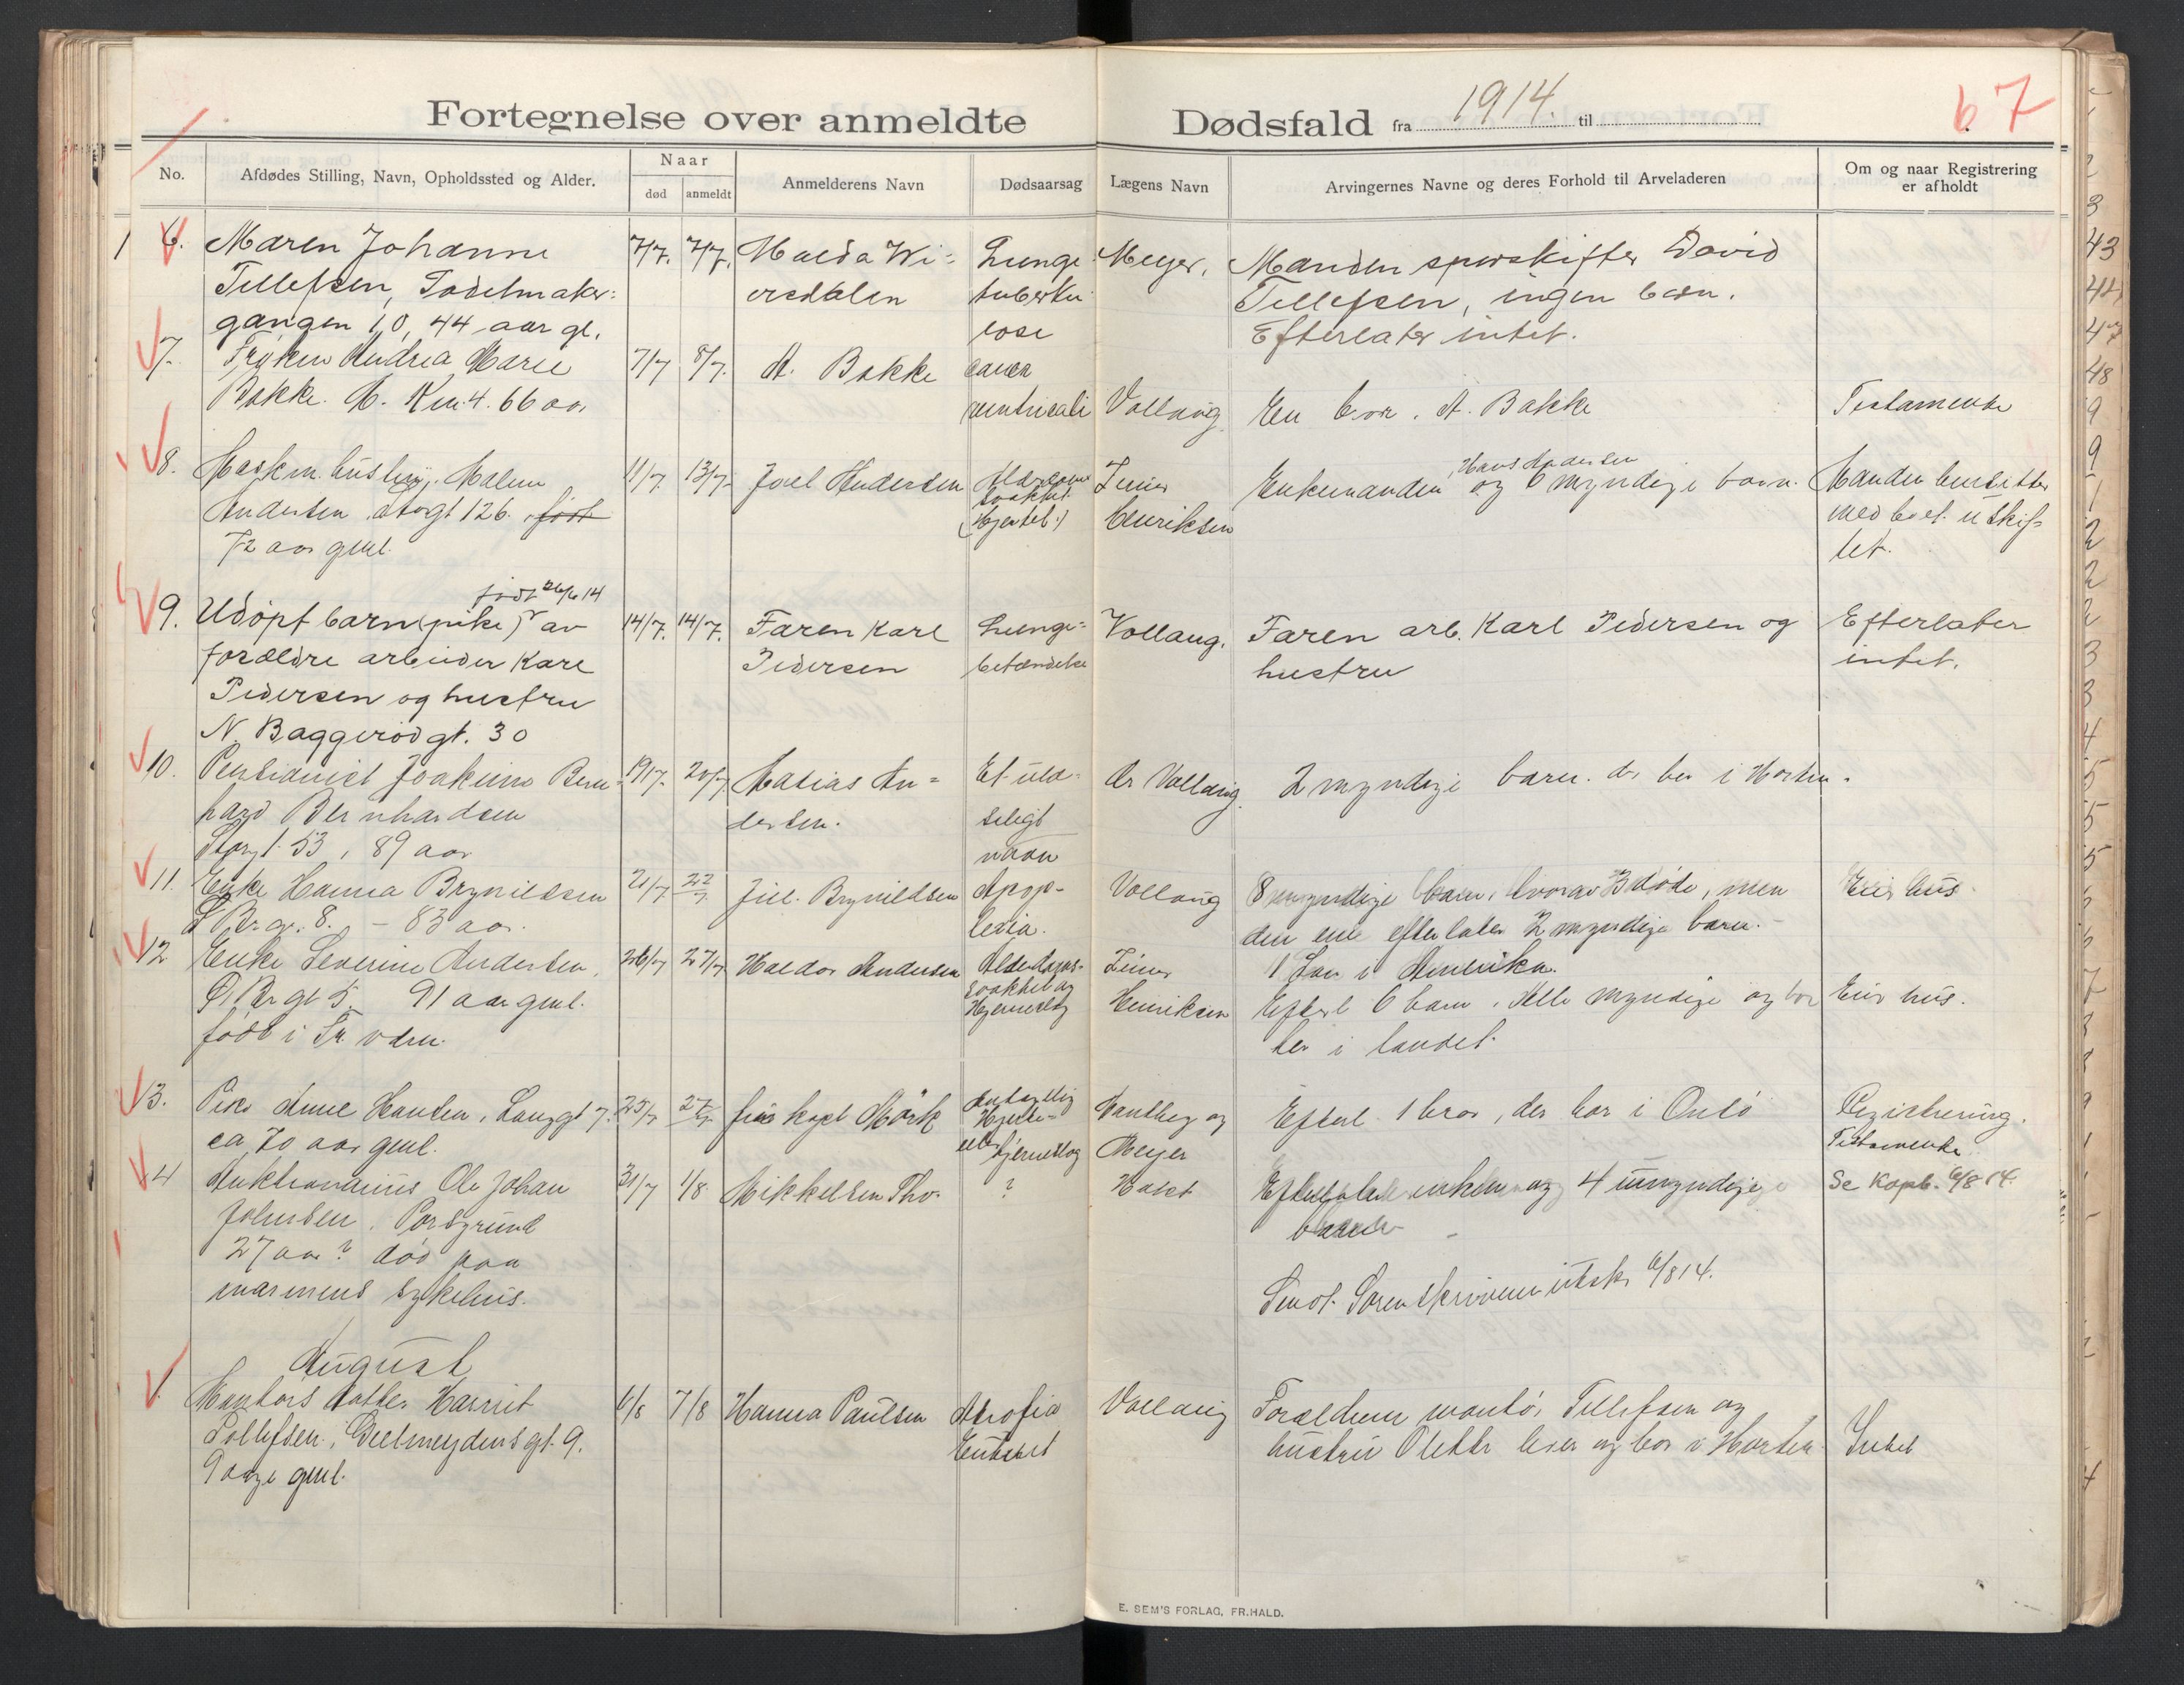 Fortegnelse over anmeldte Dødsfald fra 1914. til
67
No.
Afdødes Stilling, Navn, Opholdssted og Alder.
Naar
død
anmeldt
Anmelderens Navn
Dødsaarsag
Lægens Navn
Arvingernes Navne og deres Forhold til Arveladeren
Om og naar Registrering
er afholdt
6. Maren Johanne
Tellefsen, Sadelmaker-
gangen 10, 44 aar gl.
7/7. 7/7.
Halda Wi-
ersdalen
Lunge
tuberku
lose
Meyer.
Manden sporskifter David
Tellefsen, ingen barn.
Efterlater intet.
7. Frøken Andrea Marie
Bakke. 4. 66 aar
7/7 8/7.
A. Bakke
cancer
ventriculi
Vollaug
En bror. A. Bakke
Testamente
8. Maskin. hustru, Malene
Andersen Storgt 126. født
72 aar gml.
11/7. 13/7.
Joel Andersen
Alderdoms
svakhet
(Hjertel.)
Henriksen
Hans Andersen
Enkemanden og 6 myndige barn.
Manden besitter
med boet uskif-
tet.
født 26/6 14
9. Udøpt barn (pike) av
forældre arbeider Karl
Pedersen og hustru
N. Baggerødgt. 30
14/7. 14/7.
Faren Karl
Pedersen
Lunge-
betændelse
Vollaug.
Faren arb. Karl Pedersen og
hustru
Efterlater
intet.
10. Pensionist Joakim Bern-
hard Bernhardsen
Storgt. 53, 89 aar
19/7. 20/7
Matias An-
dersen.
Et ulæ-
seligt
navn
Dr Vollaug.
2 myndige barn. der bor i Horten.
11. Enke Hanna Brynildsen
8. - 83 aar.
21/7 22/7
Brynildsen
Apop-
lexia.
Vollaug
8 myndige barn, hvorav 3 døde, men
den ene efterlater 2 myndige barn.
1 Søn i Amerika.
Eier hus.
12 Enke Severine Andersen,
5. 91 aar gml.
født i
26/7 27/7
Haldor Andersen
Alderdoms-
svakhet og
Hjerneslag
Henriksen
Efterl 6 barn. Alle myndige og bor
her i landet.
Eier hus.
13. Pike Anne Hansen, Langgt 7.
ca 70 aar gml.
25/7 27/7
fru kapt Mørk
Antagelig
Hjerte-
eller Hjerneslag
og
Meyer
Efterl. 1 bror, der bor i Onsø
Registrering.
Testamente
14 Ole Johan
Johnsen. Porsgrund
27 aar? død paa
marinens sykehus.
31/7 1/8
Mikkelsen Tho.
?
Holst
Efterlater enke og 4 umyndige
barn
Se Kopb. 6/8 14.
Sendt Sorenskriveren utskr 6/8 14.
August
1. Montørs datter Harriet
Tollefsen. Geelmeydensgt. 9.
9 dage gml.
6/8 7/8
Hanna Paulsen
Atrofia
Vollaug
Forældrene montør Tellefsen og
hustru Olette lever og bor i Horten
Intet
E. SEM'S FORLAG, FR.HALD.